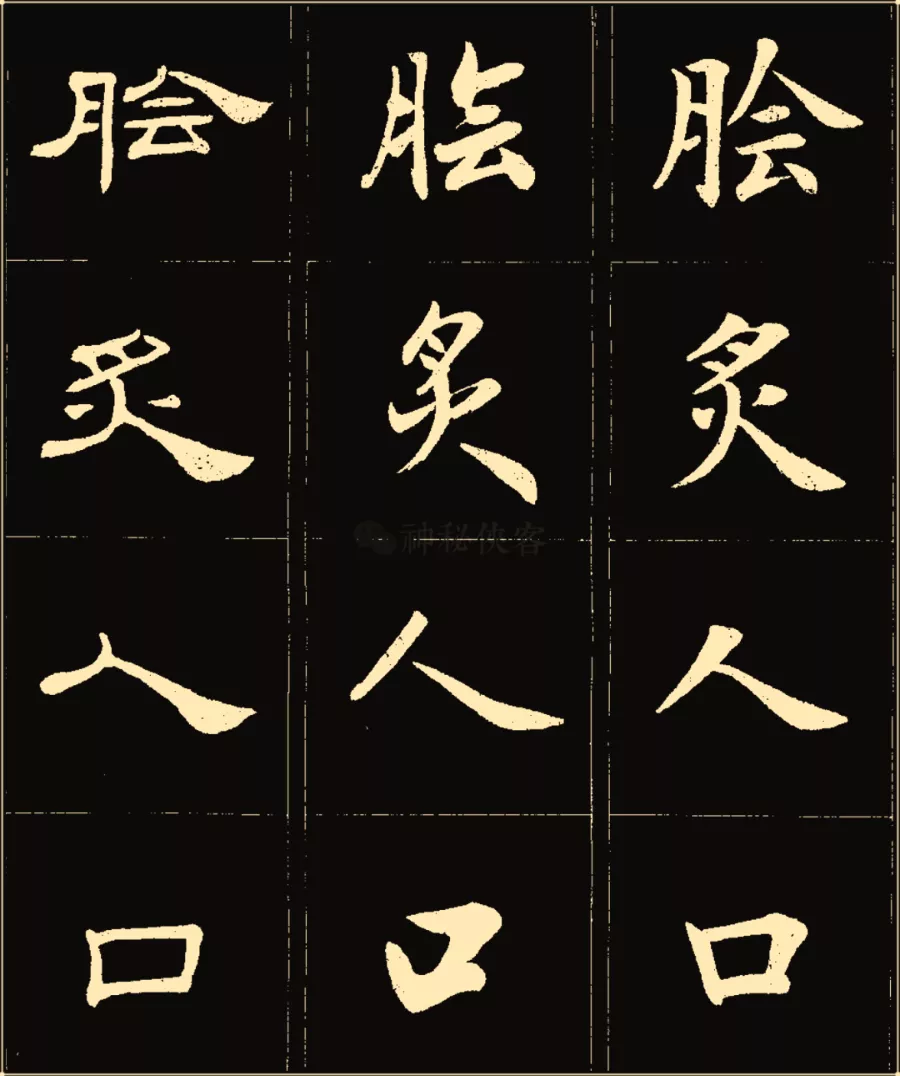 脍炙人口
脍炙人口
脍炙人口
神秘侠客